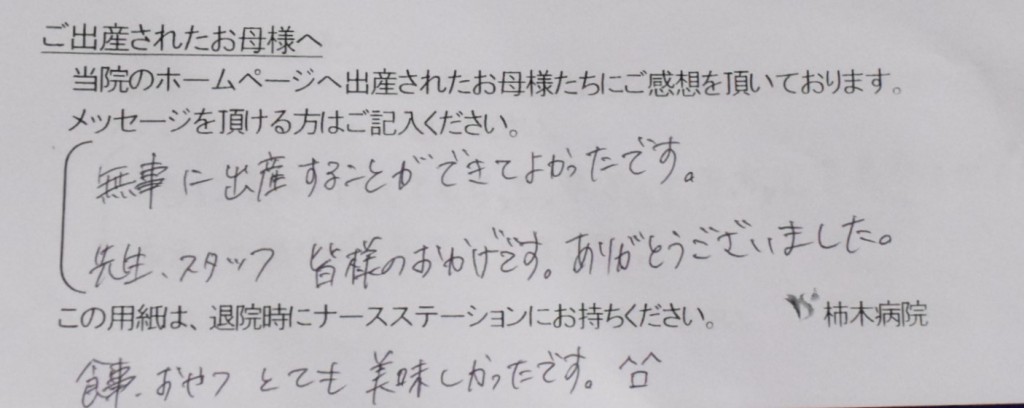 ご出産されたお母様へ
当院のホームページへ出産されたお母様たちにご感想を頂いております。
メッセージを頂ける方はご記入ください。
無事に出産することができてよかったです。
先生、スタッフ 皆様のおかげです。ありがとうございました。
この用紙は、退院時にナースステーションにお持ちください。 柿木病院
食事、おやつ とても美味しかったです。^ロ^